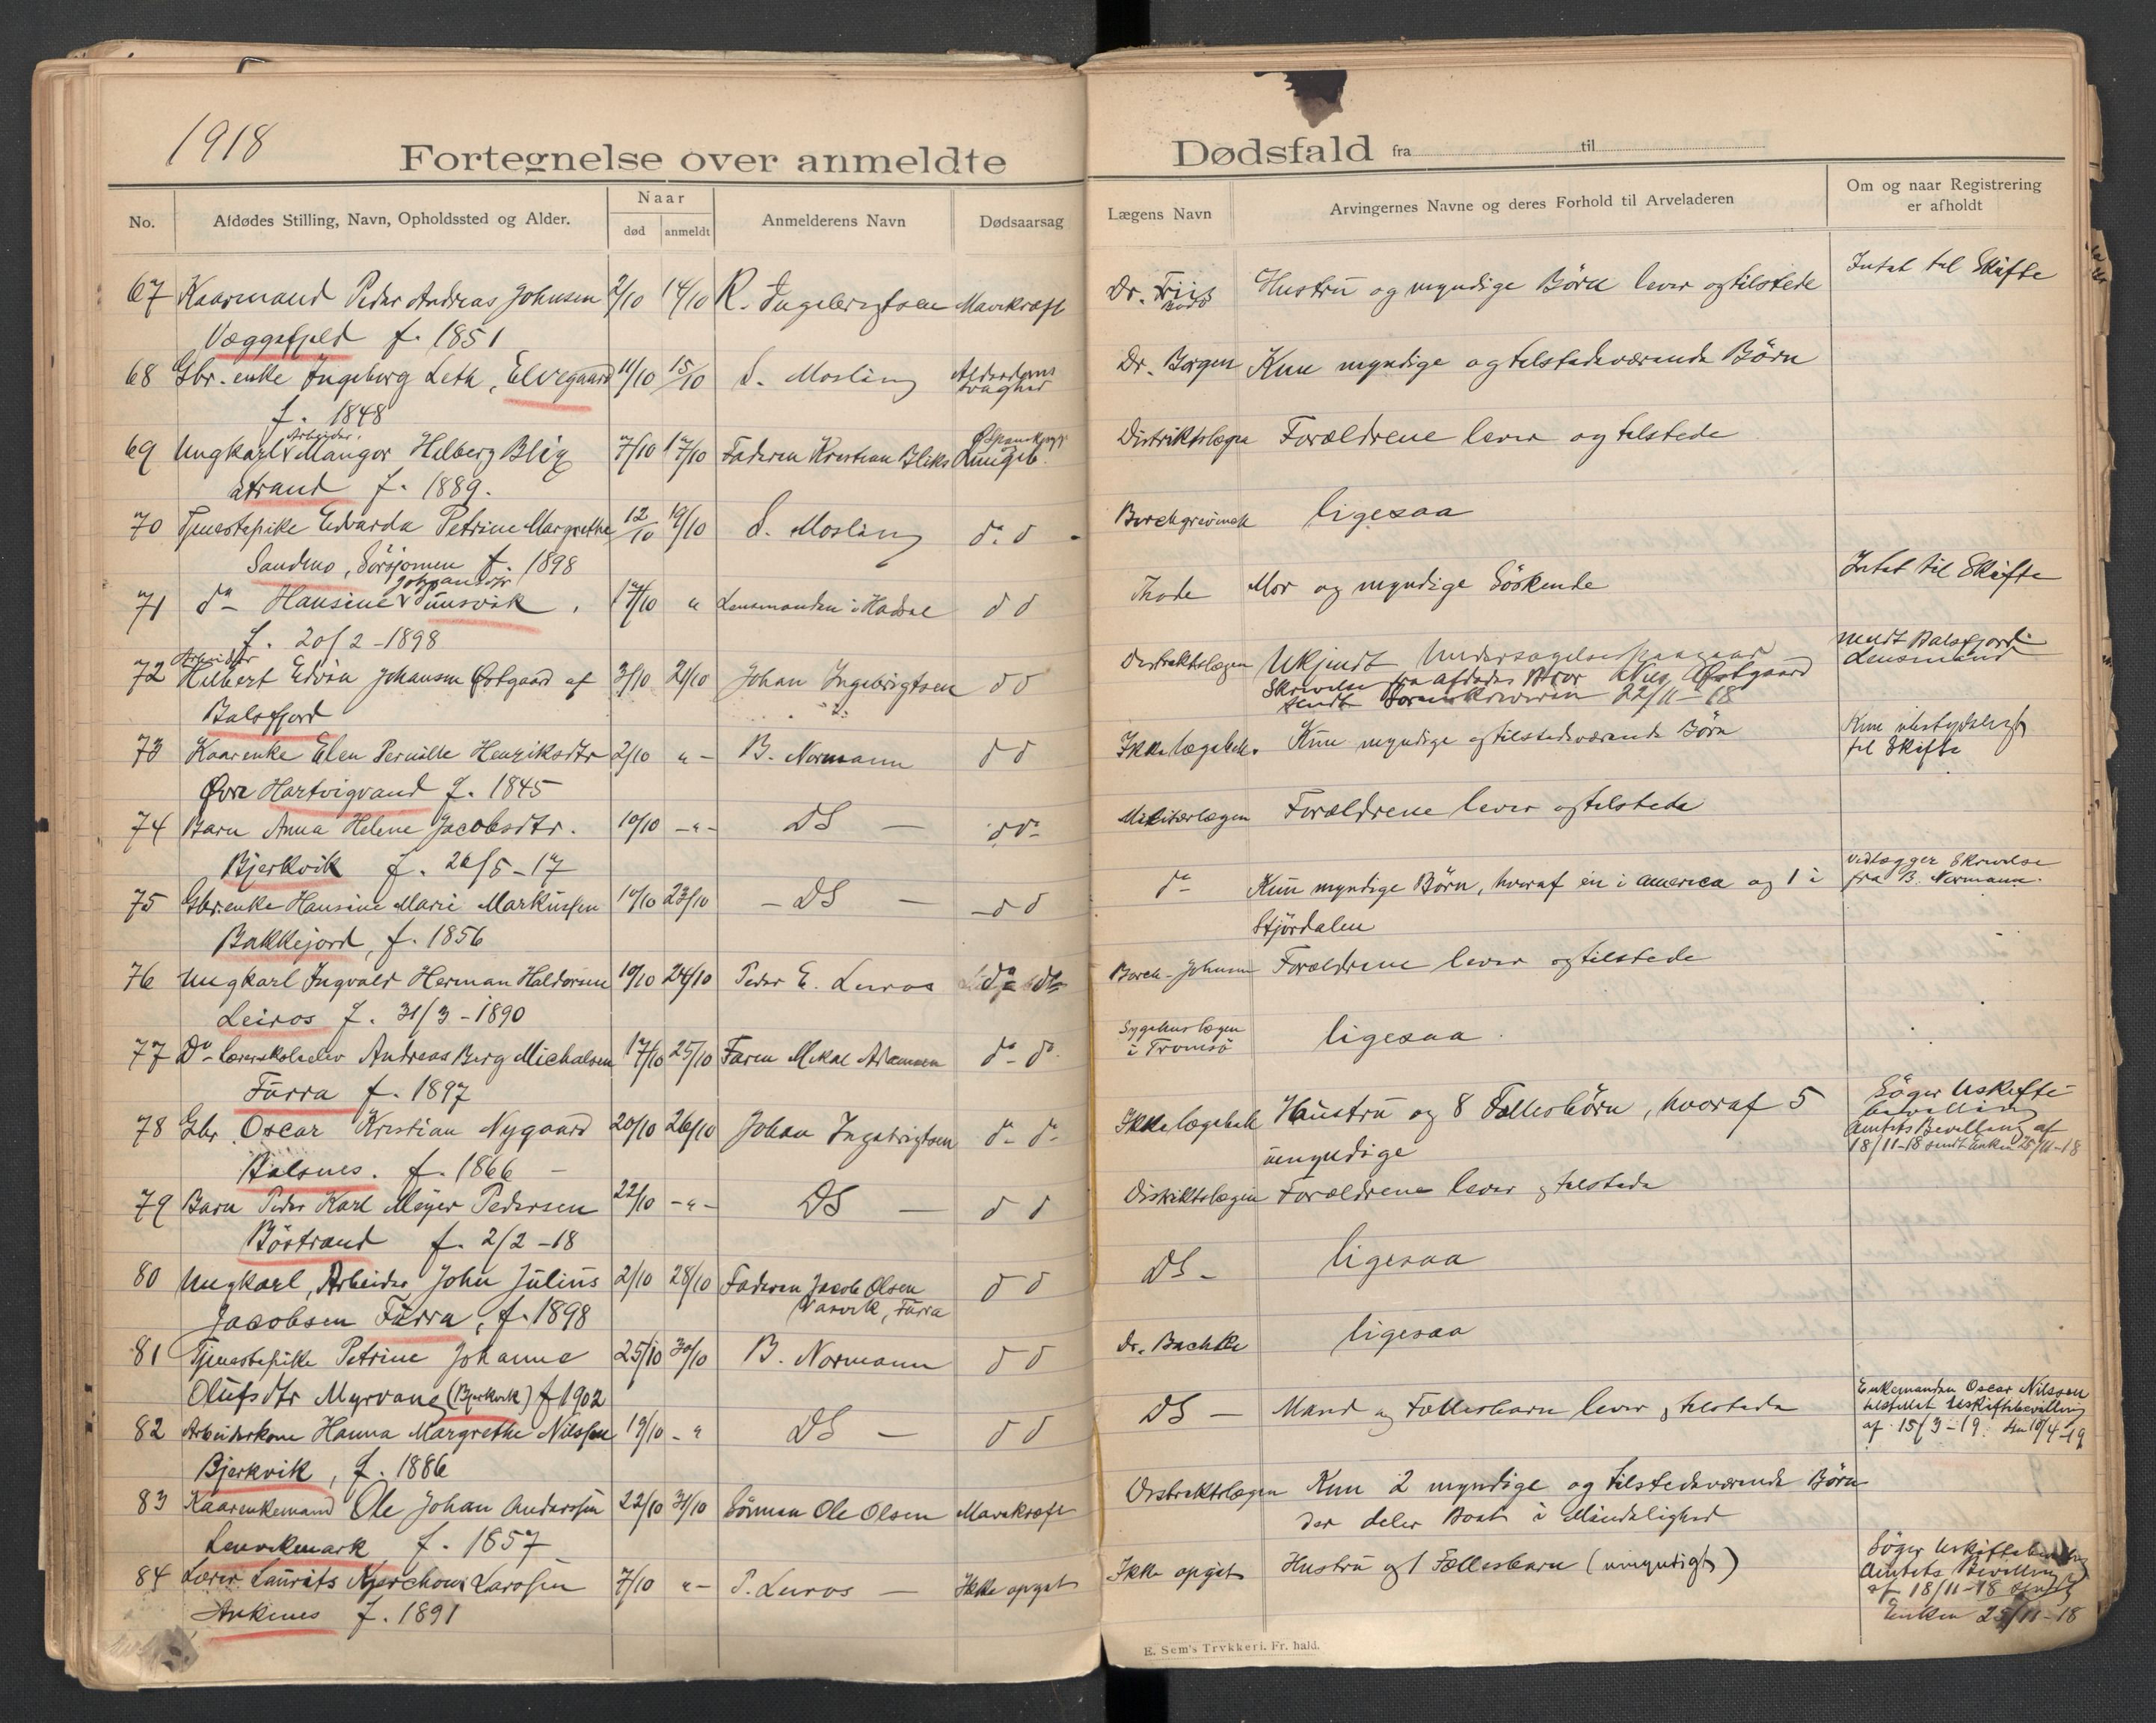 1918
Fortegnelse over anmeldte Dødsfald fra til
No. Afdødes Stilling, Navn, Opholdssted og Alder. Naar død anmeldt Anmelderens Navn Dødsaarsag Lægens Navn Arvingernes Navne og deres Forhold til Arveladeren Om og naar Registrering er afholdt
67 Kaarmand Peder Andreas Johnsen 2/10 14/10 R. Ingebrigtsen Mavekræft Dr. Friis Hustru og myndige Börn lever og tilstede Intet til Skifte
Væggefjeld f. 1851
68 Gbr. enke Ingeborg Leth, Elvegaard 11/10 15/10 S. Mosling Alderdoms svaghed Dr. Borgen Kun myndige og tilstedeværende Börn
f. 1848
69 Ungkarl Arbeider Mangor Hilberg Blix 7/10 17/10 Faderen Kristian Bliks Spansksyge Lungeb. Distriktslægen Forældrene lever og tilstede
Strand f. 1889.
70 Tjenestepike Edvarda Petrine Margrethe 12/10 19/10 S. Mosling do d Borchgrevink ligesaa
Sandmo, Sörsjonen f. 1898
71 do Hansine Johansdtr Tunsvik, 17/10 " Lensmanden i Hadsel d d Thode Mor og myndige Söskende Intet til Skifte
f. 20/2 - 1898
72 Arbeider Hilbert Edvin Johansen Østgaard af 3/10 21/10 Johan Ingebrigtsen d d Distriktslægen Ukjendt Undersøgelse paagaar sendt Balsfjord Lensmand
Balsfjord Skrivelse fra Afdødes Bror Nils Østgaard
sendt Sorenskriveren 22/11-18
73 Kaarenke Elen Pernille Henriksdtr 2/10 " - B. Normann d d Ikke lægebeh. Kun myndige og tilstedeværende Börn Kun ubetydeligt til Skifte
Øvre Hartvigvand f. 1845
74 Barn Anna Helene Jacobsdtr. 10/10 - " - DS - d do Militærlægen Forældrene lever og tilstede
Bjerkvik f. 26/5 - 17
75 Gbr. enke Hansine Marie Markussen 10/10 23/10 - DS - - d d do Kun myndige Börn, hvoraf en i America og 1 i Vedlægger Skrivelse fra B. Normann.
Bakkejord, f. 1856 Stjördalen
76 Ungkarl Ingvald Herman Haldorsen 10/10 24/10 Peder E. Luros do do Borch-Johnsen Forældrene lever og tilstede
Leiros f. 31/3 - 1890
77 Do lærerskoleelev Andreas Berg Michalsen 17/10 25/10 Faren Mikal Adamsen do do Sygehuslægen i Tromsö ligesaa
Furra f. 1897
78 Gbr Oscar Kristian Nygaard 20/10 26/10 Johan Ingebrigtsen do do Ikke lægebeh Hustru og 8 Fællesbörn, hvoraf 5 Söger Uskifte bevilling
Balsnes. f. 1866 - umyndige Amtets Bevilling af 18/11-18 sendt Enken 25/11-18
79 Barn Peder Karl Meyer Pedersen 22/10 - " - DS - d d Distriktslægen Forældrene lever og tilstede
Böstrand f. 2/2 - 18
80 Ungkarl, Arbeider John Julius 2/10 28/10 Faderen Jacob Olsen d d DS - ligesaa
Jacobsen Furra, f. 1898 Narvik, Furra
81 Tjenestepike Petrine Johanne 25/10 30/10 B. Normann d d Dr. Bachke ligesaa
Olufsdtr Myrvang (Bjerkvik) f 1902
82 Arbeiderkone Hanna Margrethe Nilsen 19/10 - " DS - d d DS - Mand og Fællesbarn lever og tilstede Enkemanden Oscar Nilsson tilstillet Uskiftebevilling
Bjerkvik, f. 1886 af 15/3-19. den 10/4-19
83 Kaarenkemand Ole Johan Anderssen 22/10 31/10 Sönnen Ole Olsen Mavekræft Distriktslægen Kun 2 myndige og tilstedeværende Börn
Lenvikmark f. 1857 der deler Boet i Mindelighed
84 Lærer Laurits Larssen 7/10 " - P. Luros - Ikke opgit Ikke opgit Hustru og 1 Fællesbarn (umyndigt) Söger Uskiftebevilling
Ankenes f. 1891 Amtets Bevilling
af 18/11-18 sendt
Enken 25/11-18
E. Sem's Trykkeri. Fr. hald.